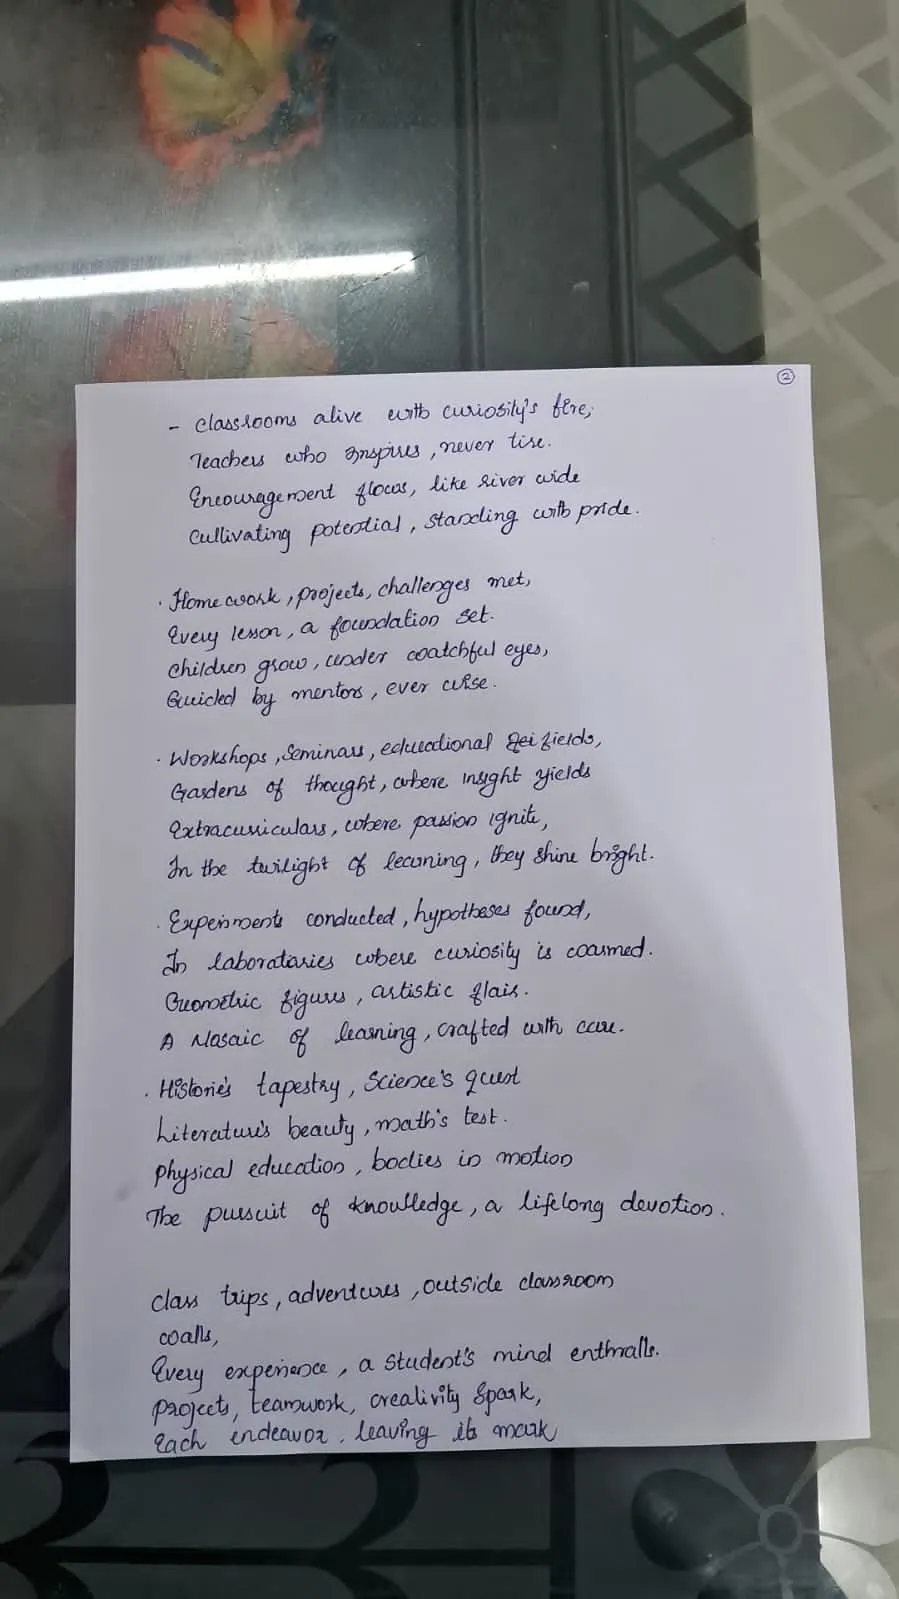 ②
- Classrooms alive with curiosity's fire,
Teachers who Inspires, never tire.
Encouragement flows, like river wide
Cultivating potential, standing with pride.
. Homework, projects, challenges met,
Every lesson, a foundation set.
Children grow, under watchful eyes,
Guided by mentors, ever wise.
. Workshops, Seminars, educational fields,
Gardens of thought, where insight yields
Extracurriculars, where passion ignite,
In the twilight of learning, they shine bright.
. Experiments conducted, hypotheses found,
In laborataries where curiosity is warmed.
Geometric figures, artistic flair.
A Mosaic of learning, crafted with care.
. Histories tapestry, Science's quest
Literature's beauty, math's test.
Physical education, bodies in motion
The pursuit of knowledge, a lifelong devotion.
Class trips, adventures, outside classroom
walls,
Every experience, a student's mind enthralls.
Projects, teamwork, creativity spark,
Each endeavor, leaving its mark